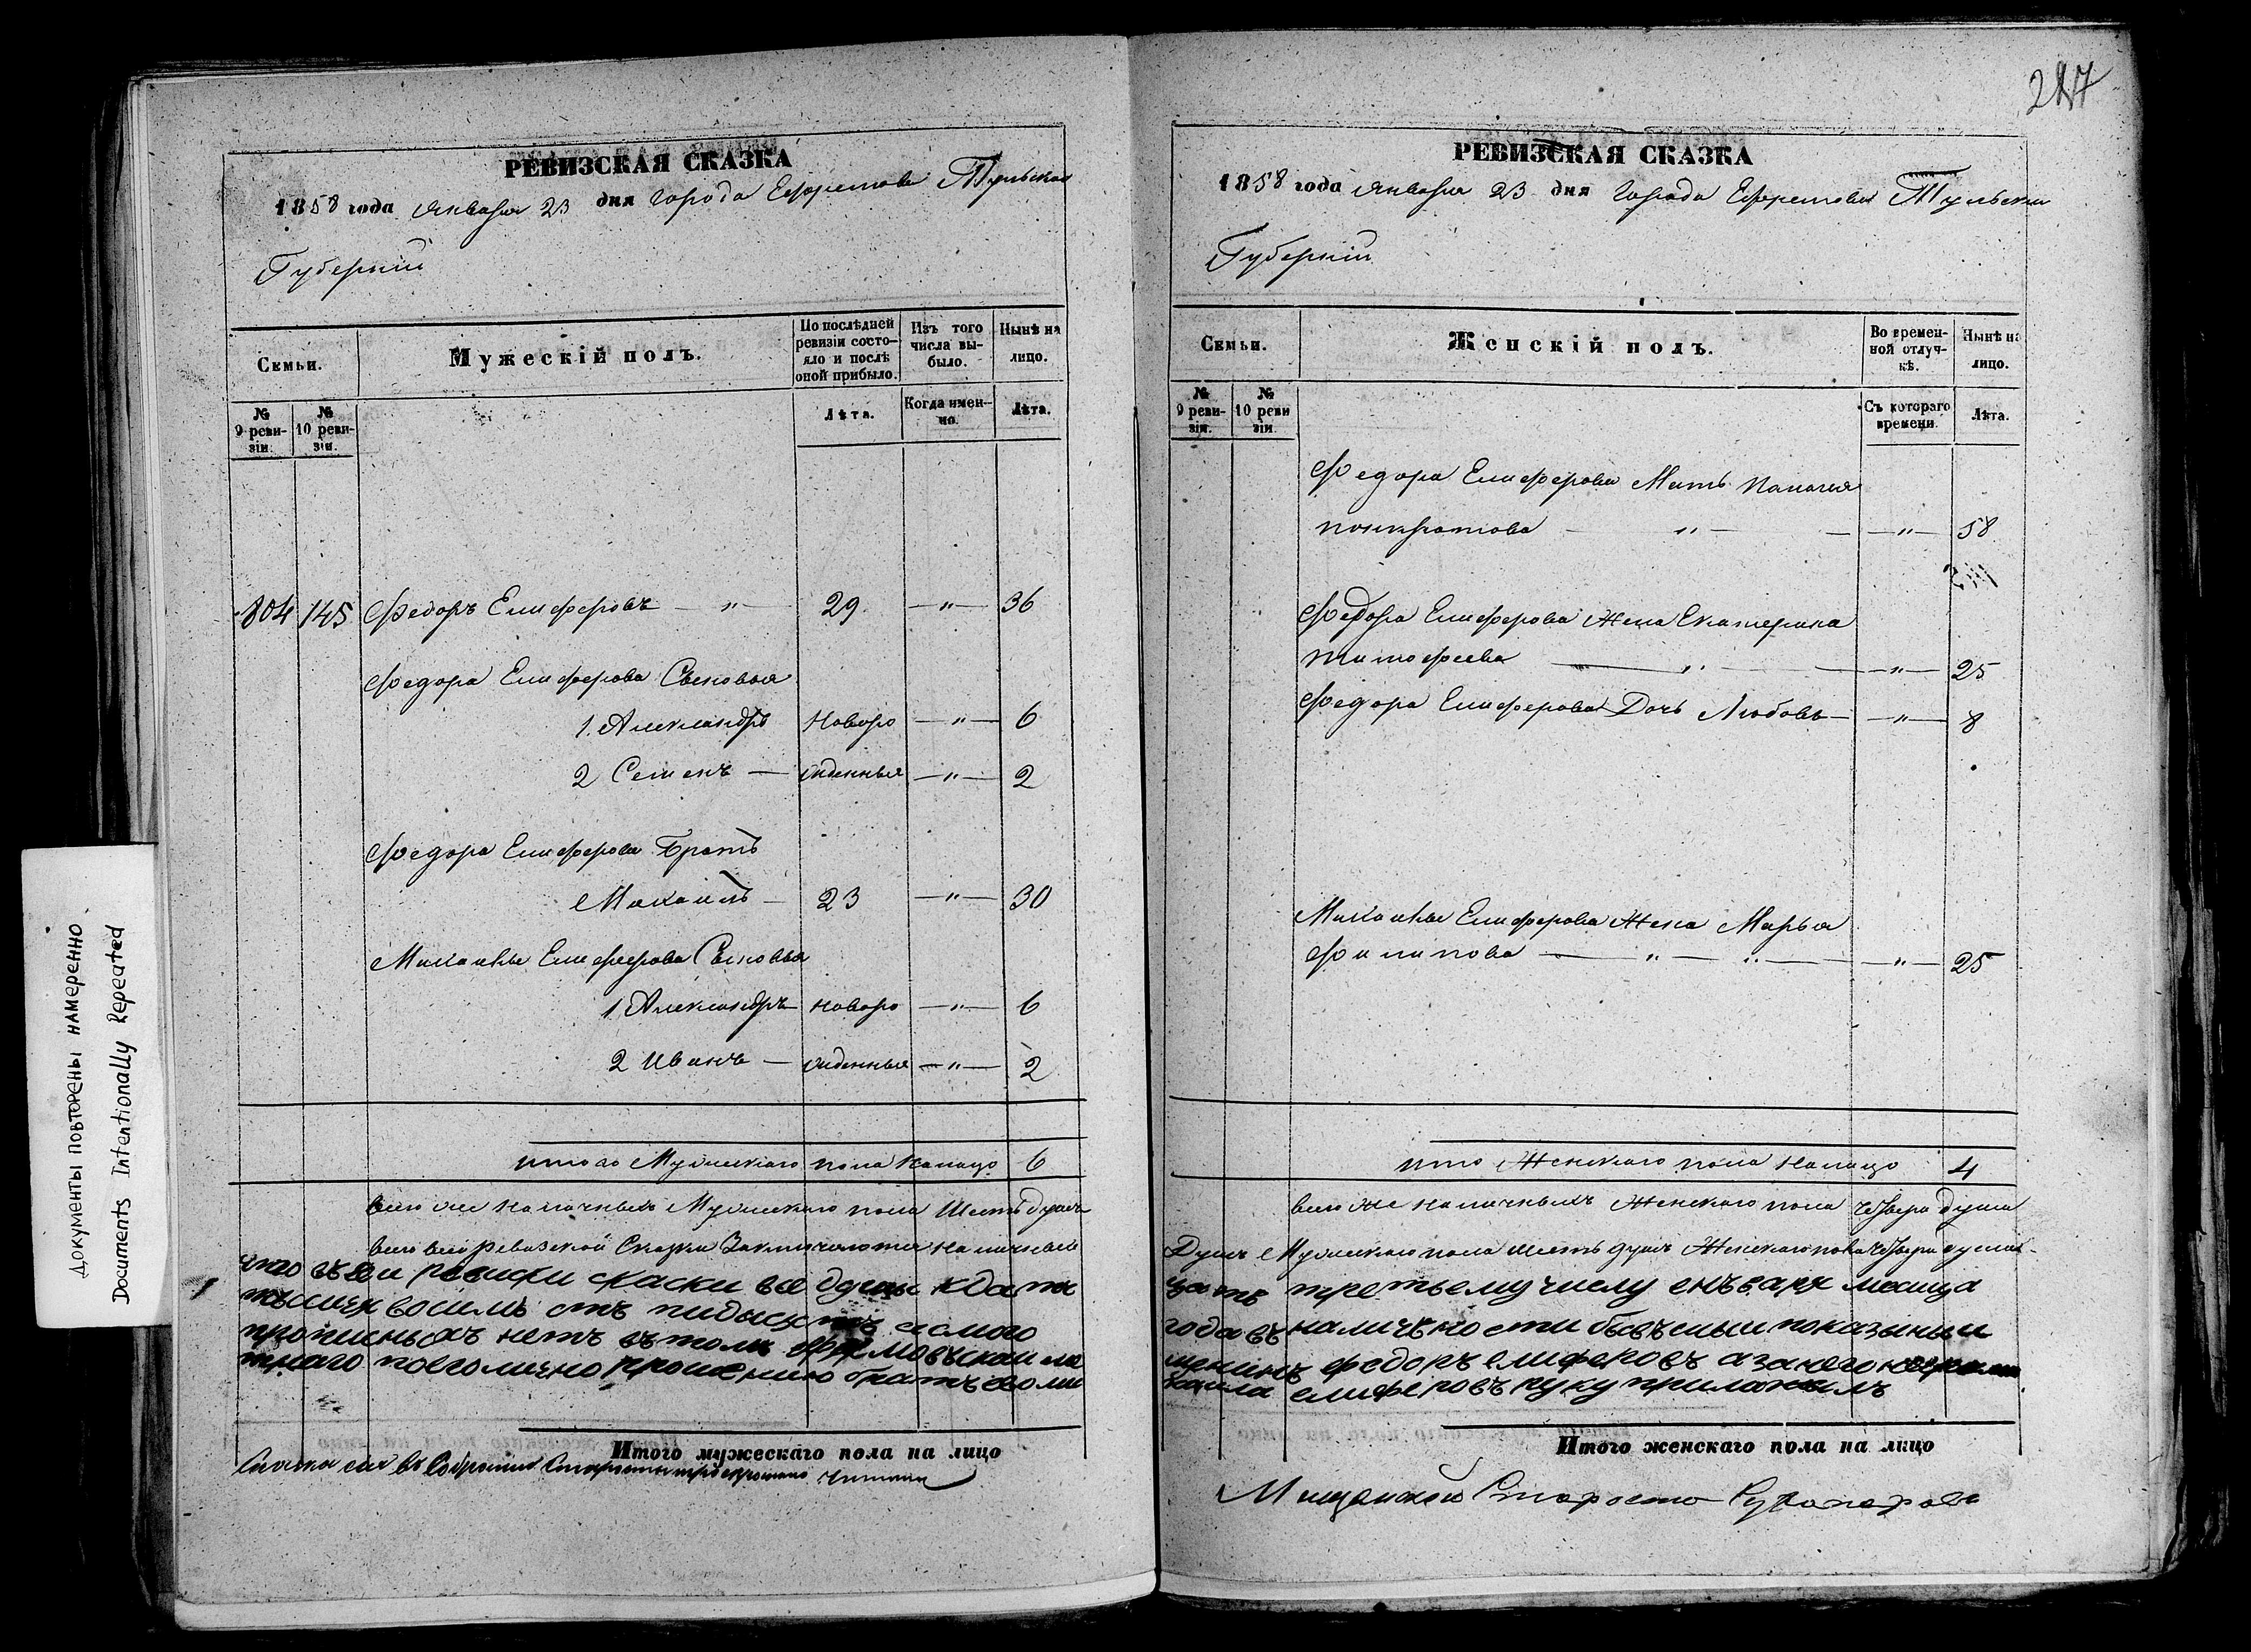 документы повторены намеренно
Documents Intentionally Repeated
РЕВИЗСКАЯ СКАЗКА
1858 года Января 23 дня города Ефремова Тульской
Губернии
Семьи.
Мужескій полъ.
По послѣдней ревизіи состояло и послѣ оной прибыло.
Изъ того числа выбыло.
Нынѣ на лицо.
№ 9 ревизіи.
№ 10 ревизіи.
Лѣта.
Когда именно.
Лѣта.
804 145 Федоръ Елиферовъ — " — 29 — " — 36
Федора Елиферова Сыновья
1. Александръ Новоро — " — 6
2 Семенъ — жденныя — " — 2
Федора Елиферова Братъ
Михаилъ — 23 — " — 30
Михаилы Елиферова Сыновья
1 Александръ новоро — " — 6
2 Иванъ — жденныя — " — 2
итого Мужескаго пола налицо 6
всего же наличныхъ Мужескаго пола Шесть душъ
всего всей Ревизской Сказки Заключается наличныхъ
что въ сеи ревиски скаски все души
тысича восимь отъ пидисятъ
прописныхъ нетъ въ томъ
по еголично прошению братъ
Итого мужескаго пола на лицо
217
РЕВИЗСКАЯ СКАЗКА
1858 года Января 23 дня города Ефремова Тульской
Губернии
Семьи.
Женскій полъ.
Во временной отлучкѣ.
Нынѣ на лицо.
№ 9 ревизіи.
№ 10 ревизіи.
Съ котораго времени.
Лѣта.
Федора Елиферова Мать
понкратова — " — — " — 58
Федора Елиферова Жена Екатерина
тимофеева — " — — " — 25
Федора Елиферова Дочь Любовь — — " — 8
Михаилы Елиферова Жена Марья
Филипова — " — " — — " — 25
ито Женскаго пола налицо 4
всего же наличныхъ Женскаго пола четверы души
Душъ Мужескаго пола шесть душъ Женского пола четверы души
цать третьему числу енъваря месица
года въ наличности бывъсыи показыны и
щенинъ федоръ елиферовъ а за него
хаила елиферовъ руку приложилъ
Итого женскаго пола на лицо
Мещанской Староста